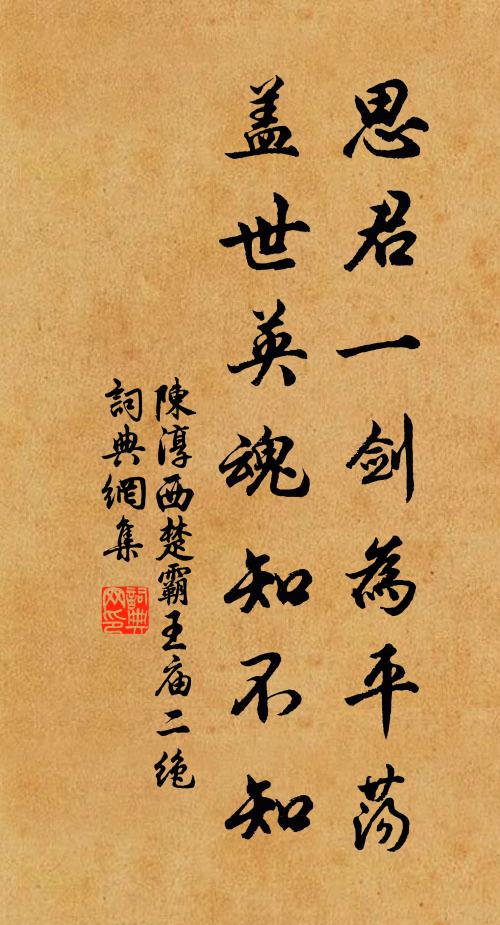 思君一剑為平荡
盖世英魂知不知
陳淳西楚霸王庙二绝
詞典網集
詞典
网印